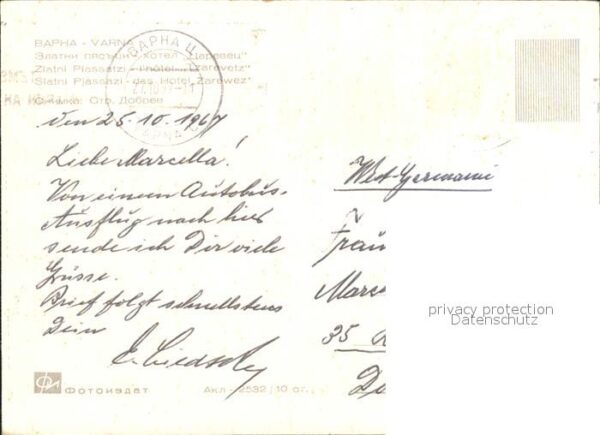 ВАРНА - VARNA
Златни пясъци - хотел „Царевец"
Zlatni Piassatzi - l'hôtel „Zarevetz"
Slatni Pjassazi - das Hotel „Zarewez"
Снимка: Стр. Добрев
ВАРНА Ц.
VARNA
den 25. 10. 1967
Liebe Marcella!
Von einem Autobus-
Ausflug nach hier
sende ich Dir viele
Grüsse.
Brief folgt schnellstens
Dein
West-Germani
Fräu
Marce
35
privacy protection
Datenschutz
Фотоиздат
Акл - 2532 / 10 от